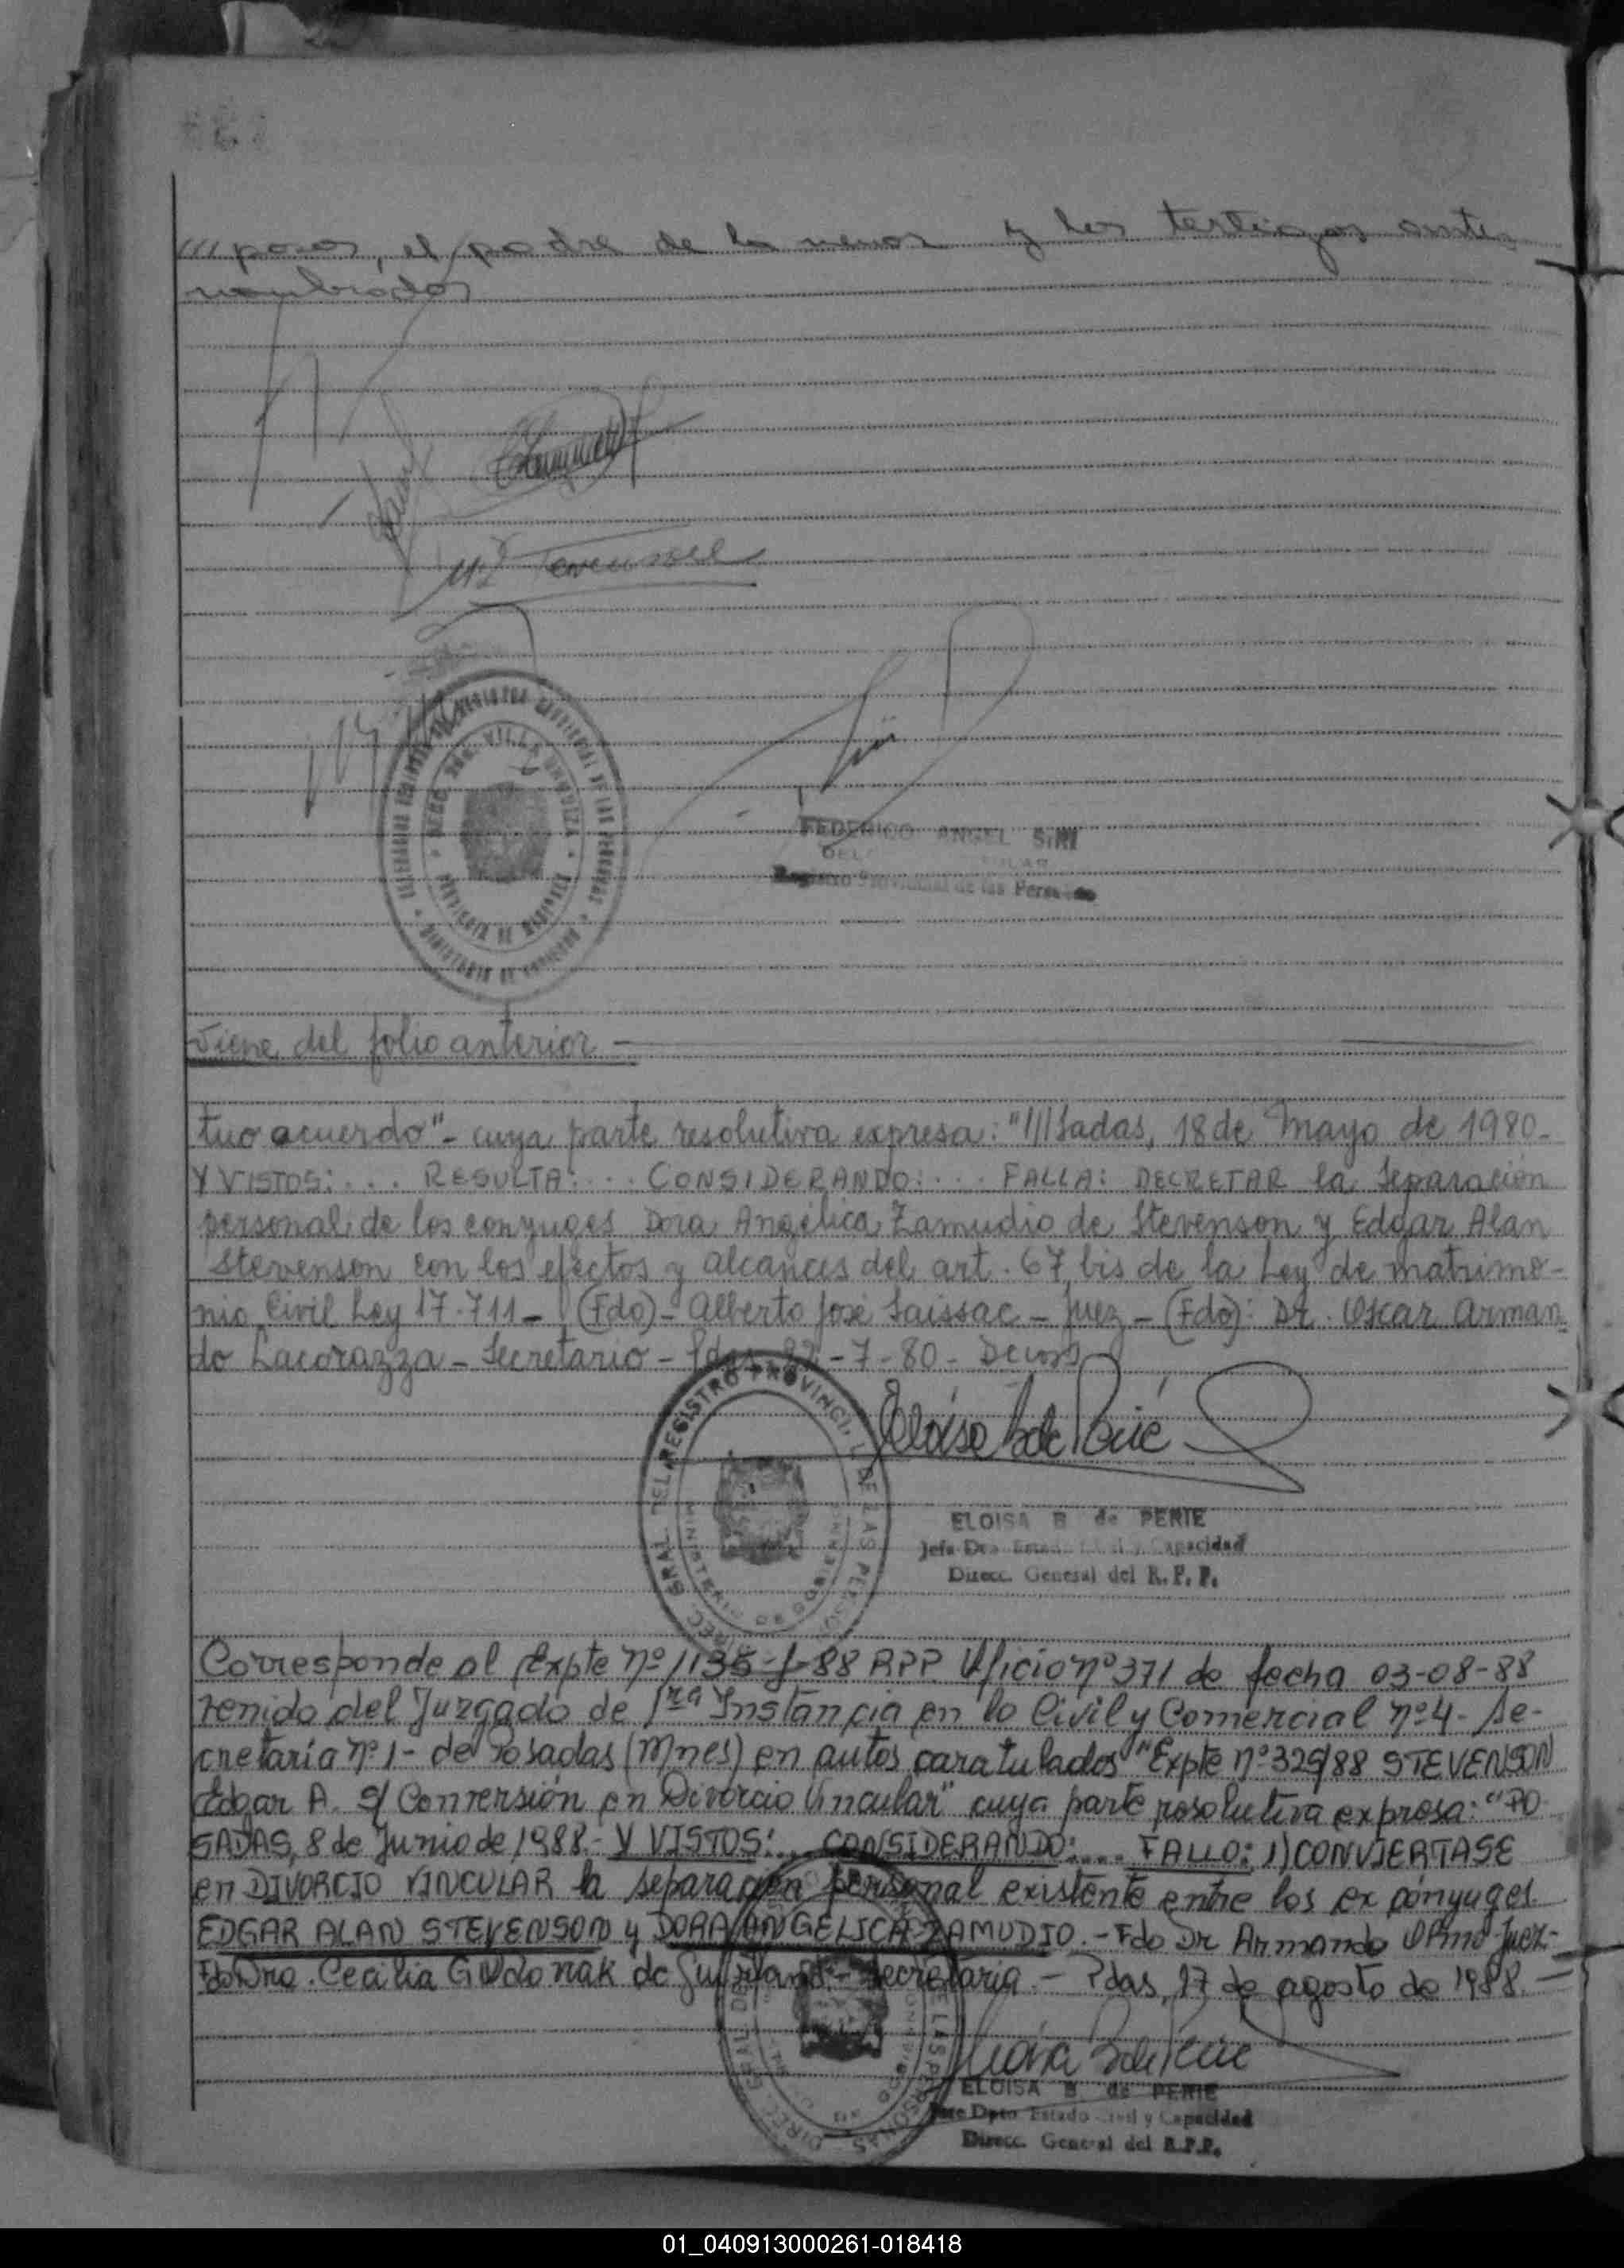 ///posos, el padre de la menor y los testigos antes
nombrados
FEDERICO ANGEL SIRI
Registro Provincial de las Personas
Viene del folio anterior -
tuo acuerdo"- cuya parte resolutiva expresa: "///sadas, 18 de Mayo de 1980-
Y VISTOS:... RESULTA:... CONSIDERANDO:... FALLA: DECRETAR la Separación
personal de los conyuges Dora Angélica Zamudio de Stevenson y Edgar Alan
Stevenson con los efectos y alcances del art. 67 bis de la Ley de matrimo-
nio Civil Ley 17.711- (Fdo)- Alberto José Saissac - Juez - (Fdo): Dr. Oscar Arman-
do Lacorazza - Secretario - Pdas -7-80-
ELOISA B de PERIE
Jefa Dto Estado Civil y Capacidad
Direcc. General del R. P. P.
Corresponde al Expte nº 1135-J-88 RPP. Oficio nº 371 de fecha 03-08-88
venido del Juzgado de 1ra Instancia en lo Civil y Comercial nº 4- Se-
cretaría nº 1- de Posadas (Mnes) en autos caratulados "Expte nº 329/88 STEVENSON
Edgar A. s/ Conversión en Divorcio Vincular" cuya parte resolutiva expresa: "PO
SADAS, 8 de Junio de 1988.- Y VISTOS:... CONSIDERANDO:... FALLO: 1) CONVIERTASE
en DIVORCIO VINCULAR la separación personal existente entre los ex cónyuges
EDGAR ALAN STEVENSON y DORA ANGELICA ZAMUDIO.- Fdo Dr Armando Juez-
Fdo Dra. Cecilia de - Secretaria.- Pdas, 17 de agosto de 1988.-
ELOISA B de PERIE
Jefe Dpto Estado Civil y Capacidad
Direcc. General del R.P.P.
01_040913000261-018418